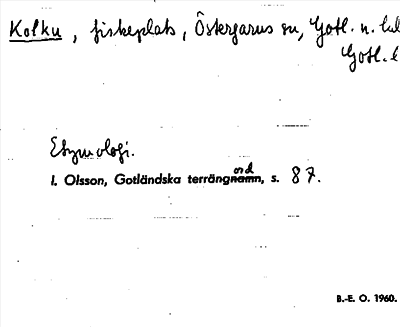 Kolku, fiskeplats, Östergarns sn, Gotl. n.
Gotl. l
Etymologi.
I. Olsson, Gotländska terrängord, s. 87.
B.-E. O. 1960.